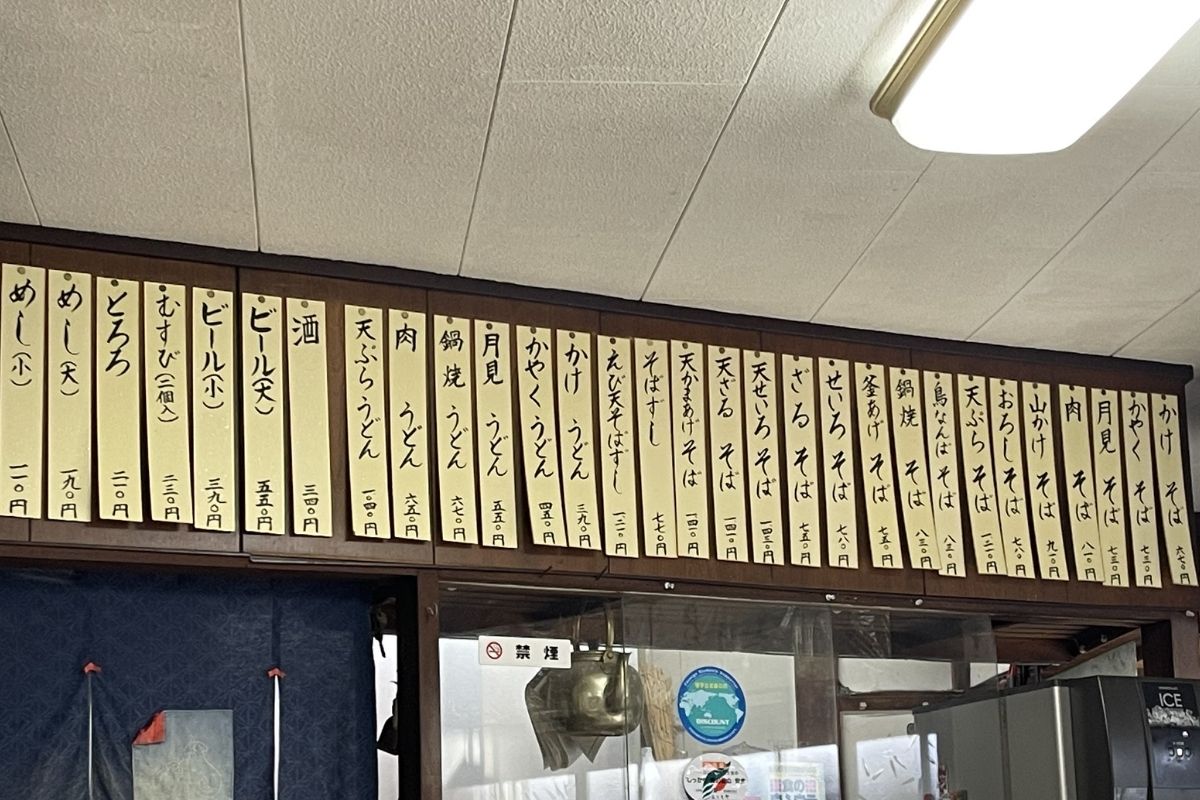 かけ そば 六七〇円
かやく そば 七三〇円
月見 そば 七三〇円
肉 そば 八一〇円
山かけ そば 九一〇円
おろし そば 七八〇円
天ぷら そば 一二一〇円
鳥なんば そば 八三〇円
鍋焼 そば 八三〇円
釜あげ そば 七五〇円
せいろ そば 七八〇円
ざる そば 七五〇円
天せいろ そば 一四三〇円
天ざる そば 一四一〇円
天かまあげ そば 一四一〇円
そばずし 七七〇円
えび天そばずし 一二一〇円
かけ うどん 三九〇円
かやく うどん 四五〇円
月見 うどん 五五〇円
鍋焼 うどん 六七〇円
肉 うどん 六五〇円
天ぷら うどん 一〇四〇円
酒 三四〇円
ビール(大) 五五〇円
ビール(小) 三九〇円
むすび(二個入) 二三〇円
とろろ 二一〇円
めし(大) 一九〇円
めし(小) 一一〇円
禁煙
DISCOUNT
ICE